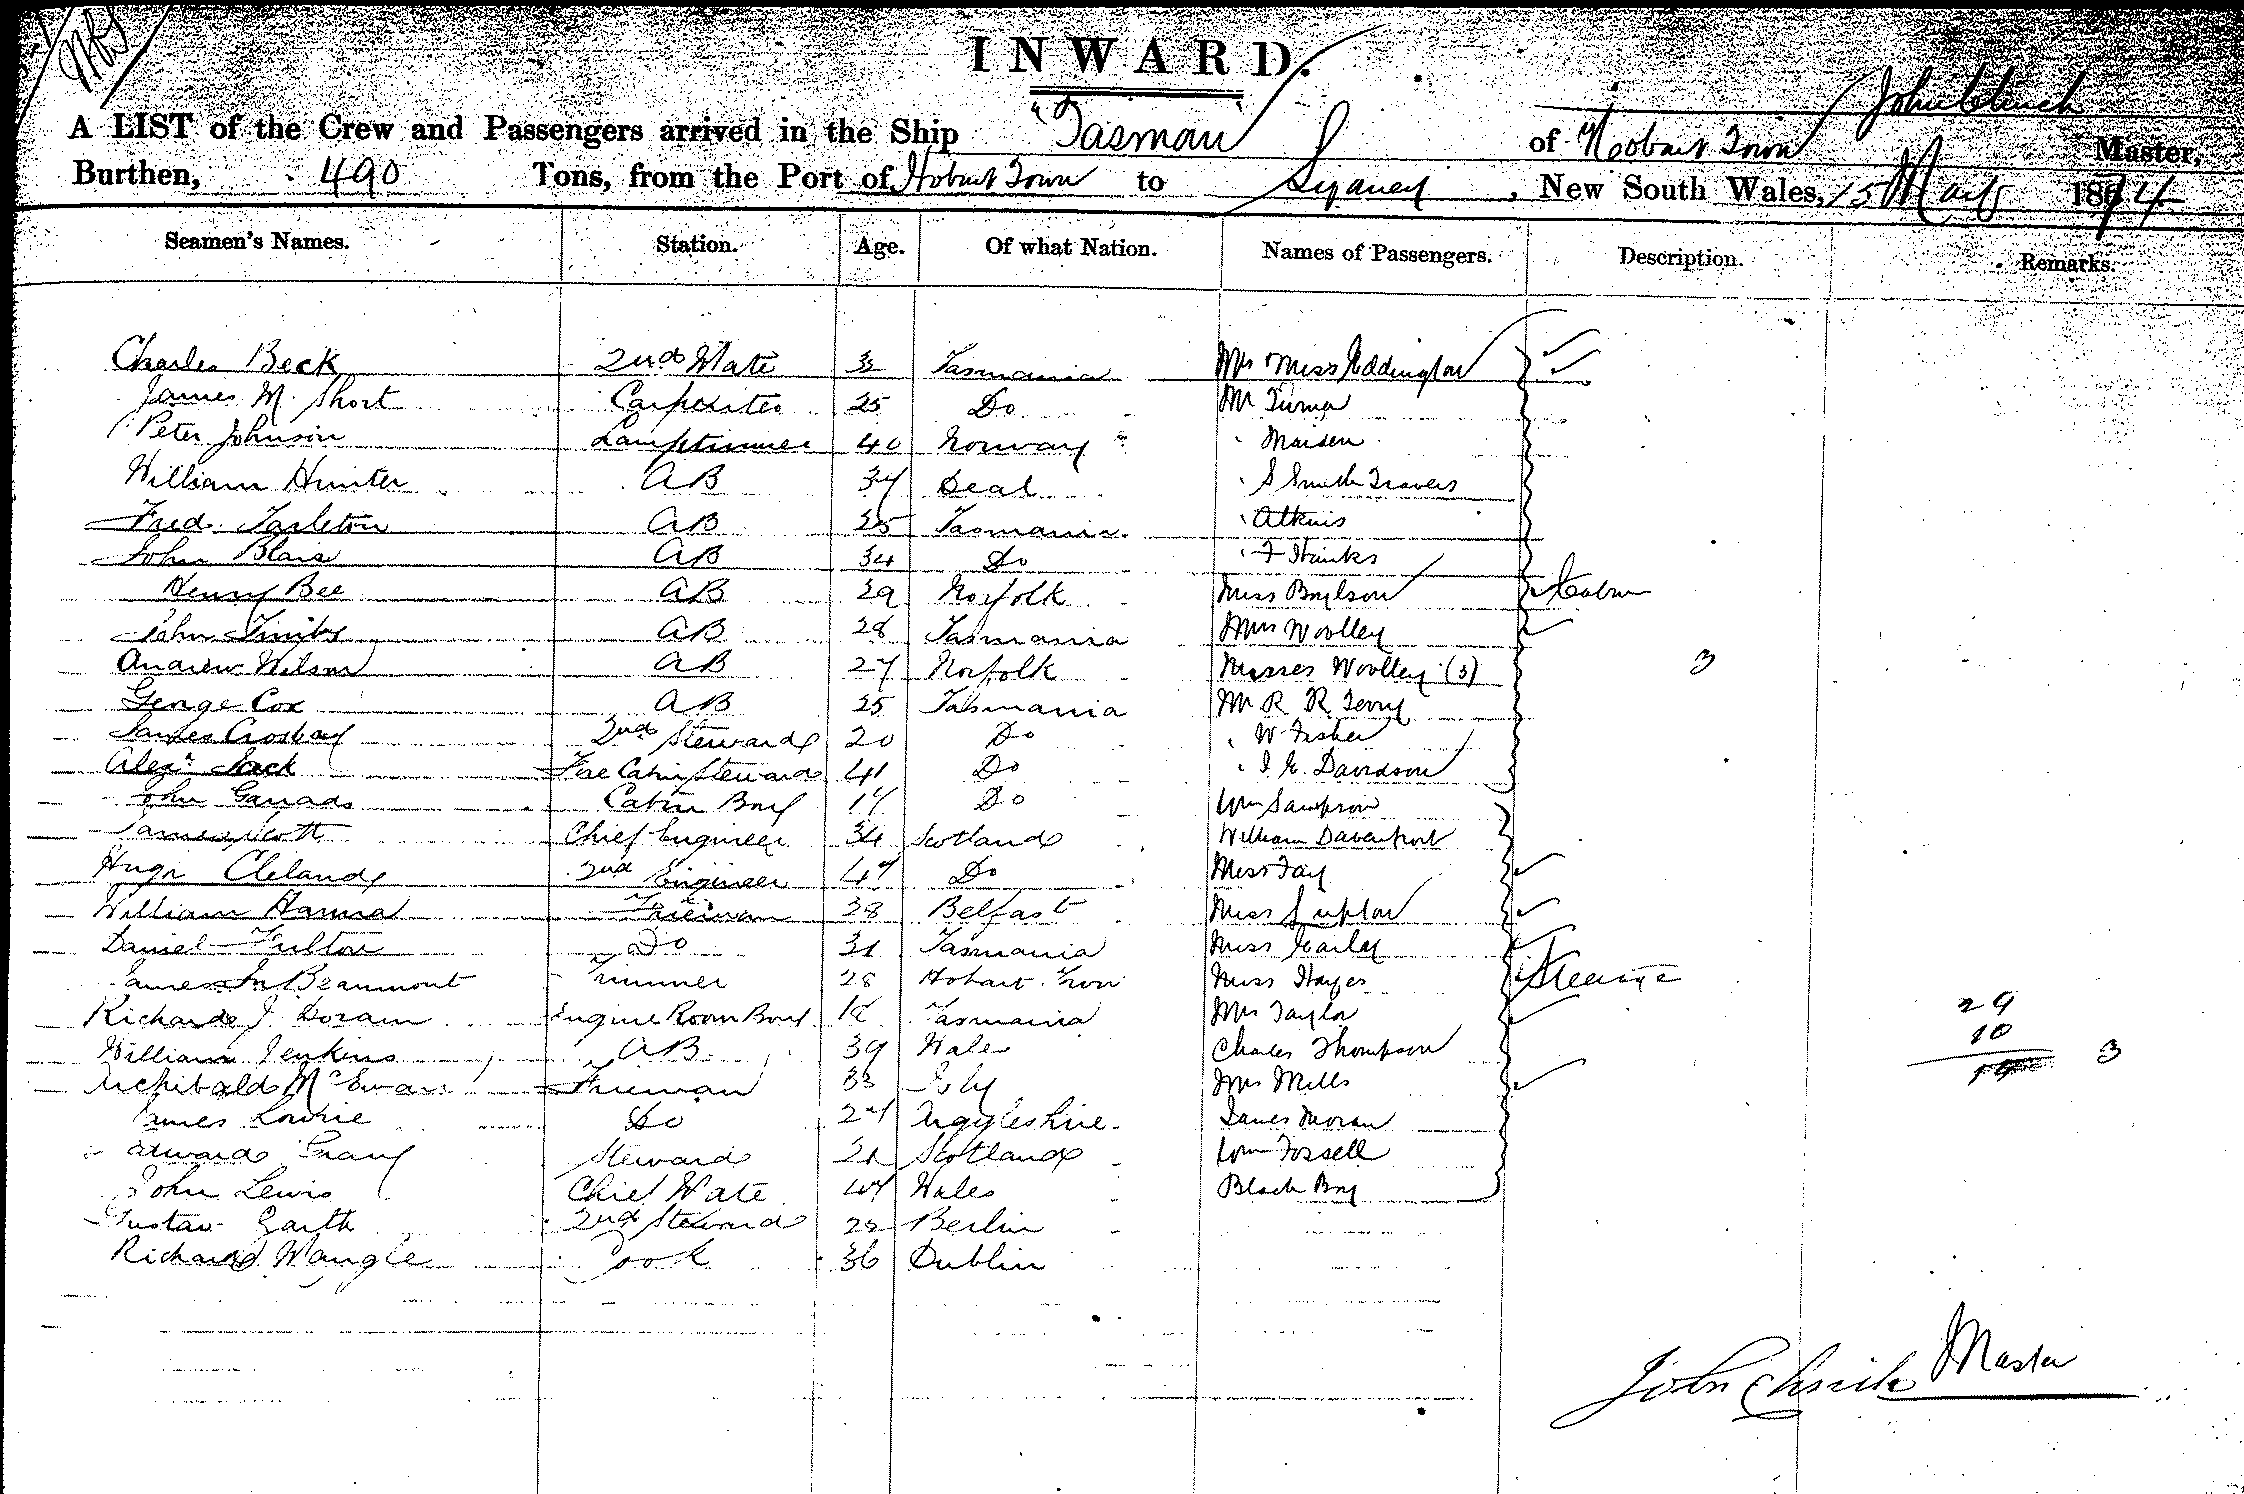 INWARD.
A LIST of the Crew and Passengers arrived in the Ship "Tasman" of Hobart Town John Clinch Master,
Burthen, 490 Tons, from the Port of Hobart Town to Sydney, New South Wales, 15 March 1874
Seamen's Names. Station. Age. Of what Nation. Names of Passengers. Description. Remarks.
Charles Beck 2nd Mate Tasmania Mrs Miss Eddington
James M. Short Carpenter 25 Do Mr Turner
Peter Johnson Lamptrimmer 40 Norway Maiden
William Hunter AB 37 Deal S Smith Travers
Fred. Tarleton AB 25 Tasmania Atkins
John Blair AB 34 Do
Henry Bee AB 29 Norfolk Miss Cabin
John AB 28 Tasmania Mrs Woolley
Andrew Wilson AB 27 Norfolk Misses Woolley (3) 3
George Cox AB 25 Tasmania Mr R R Terry
James Crosby 2nd Steward 20 Do W Fisher
Alexr Jack Fore Cabin Steward 41 Do Davidson
John Cabin Boy 17 Do Wm Sampson
James Scott Chief Engineer 34 Scotland William Davenport
Hugh Cleland 2nd Engineer 47 Do Miss
William Hanna Fireman 28 Belfast Miss
Daniel Fulton Do 31 Tasmania Miss
James Beaumont Trimmer 28 Hobart Town Miss Hayes Steerage
Richard J. Doram Engine Room Boy Tasmania Mrs Taylor 29
William Jenkins AB 39 Wales Charles Thompson 10
Archibald McEwan Fireman 33 Mrs Mills 19 3
James Lowrie Do 27 Argyleshire James Moran
Edward Steward 21 Scotland Wm Fossell
John Lewis Chief Mate 47 Wales Black Boy
Gustav Garth 2nd Steward 22 Berlin
Richard Wangle Cook 36 Dublin
John Clinch Master